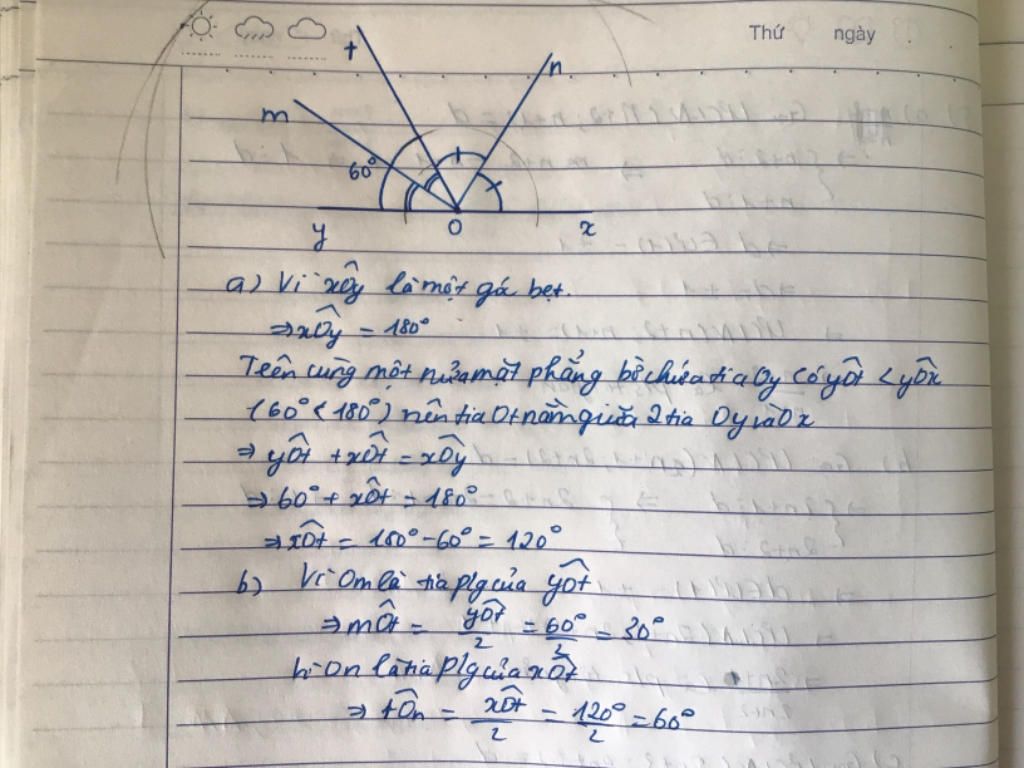 Thứ ngày
t
n
m
60°
y O x
a) Vì xÔy là một góc bẹt.
⇒ xÔy = 180°
Trên cùng một nửa mặt phẳng bờ chứa tia Oy có yÔt < yÔx
(60° < 180°) nên tia Ot nằm giữa 2 tia Oy và Ox
⇒ yÔt + xÔt = xÔy
⇒ 60° + xÔt = 180°
⇒ xÔt = 180° - 60° = 120°
b) Vì Om là tia plg của yÔt
⇒ mÔt = yÔt/2 = 60°/2 = 30°
Vì On là tia plg của xÔt
⇒ tÔn = xÔt/2 = 120°/2 = 60°